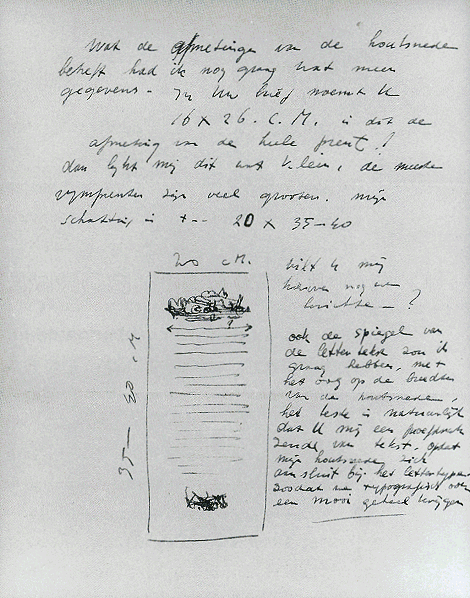 Wat de afmetingen van de houtsnede
betreft had ik nog graag wat meer
gegevens - In Uw brief noemt U
16 x 26. C.M. is dit de
afmeting van de heele prent!
dan lijkt mij dit wat klein, de meeste
rijmprenten zijn veel grooter. mijn
schatting is +-- 20 x 35-40
20 cM.
wilt U mij
hierover nog even
berichten - ?
35 - 40 cM
ook de spiegel van
de letter tekst zou ik
graag hebben, met
het oog op de breedte
van de houtsnede,
het beste is natuurlijk
dat U mij een proefdruk
zende van tekst, opdat
mijn houtsnede zich
aansluit bij het lettertype
zoodat we typografisch ook
een mooi geheel krijgen